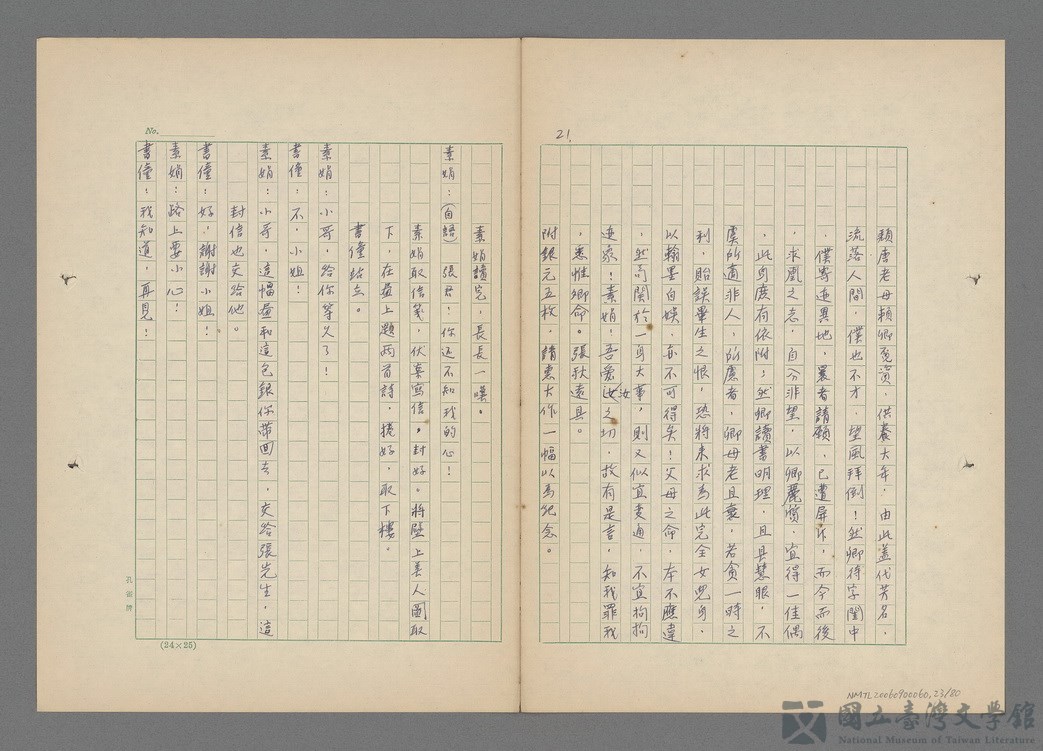 21.
賴唐老母賴卿兔資，供養大年，由此蓋代芳名，
流落人間，僕也不才，望風拜倒！然卿待字閨中
，僕寄迹異地，曩者請願，已遭屏斥，而今而後
，求凰之念，自分非望，以卿麗質，宜得一佳偶
，此身庶有依附；然卿讀書明理，且具慧眼，不
虞所適非人，所慮者，卿母老且衰，若貪一時之
利，貽誤畢生之恨，恐將来求為此完全女兒身，
以翰墨自娛，亦不可得矣！父母之命，本不應違
，然有關於一身大事，則又似宜変通，不宜拘拘
迹象！素娟！吾愛汝之切，故有是言，知我罪我
，悉惟卿命。張秋遠具。
附銀元五枚，請惠大作一幅以為紀念。
No.
素娟讀完，長長一嘆。
素娟：（自語）張君！你还不知我的心！
素娟取信箋，伏案寫信，封好。將壁上美人圖取
下，在畫上題两首詩，捲好，取下樓。
書僮站立。
素娟：小哥，給你等久了！
書僮：不，小姐！
素娟：小哥，這幅畫和這包銀你带回去，交給張先生，這
封信也交給他。
書僮：好，謝謝小姐！
素娟：路上要小心！
書僮：我知道，再見！
孔雀牌
(24×25)
NMTL20060900060,23/80
國立臺灣文學館
National Museum of Taiwan Literature